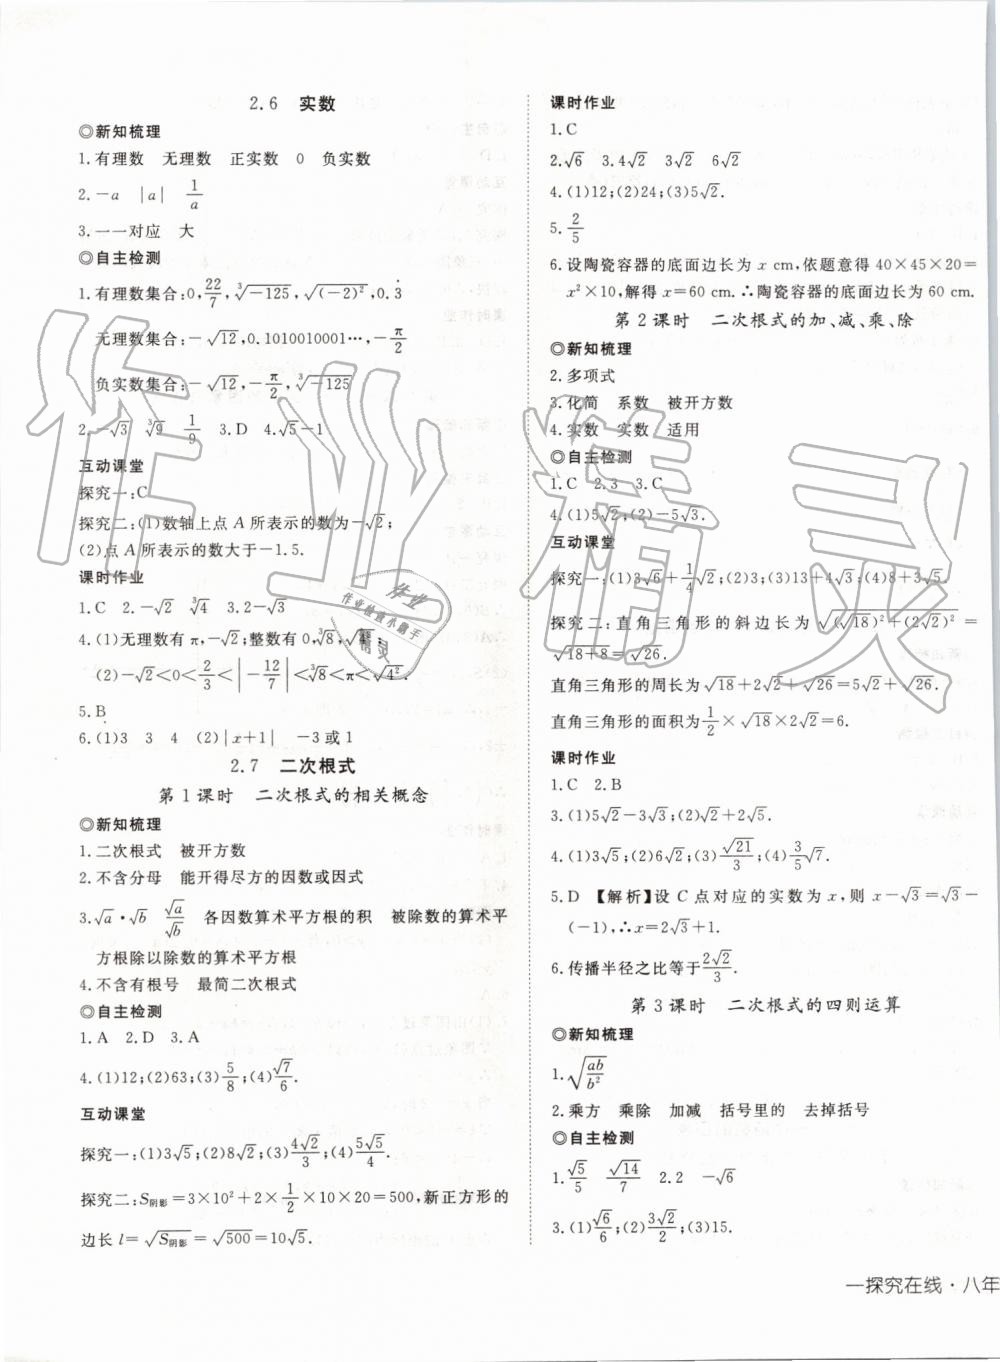 2.6 实数
◎新知梳理
1.有理数 无理数 正实数 0 负实数
2.-a |a| 1/a
3.一一对应 大
◎自主检测
1.有理数集合:0,22/7,∛-125,√(-2)²,0.3̇
无理数集合:-√12,0.1010010001…,-π/2
负实数集合:-√12,-π/2,∛-125
2.-√3 ∛9 1/9 3.D 4.√5-1
互动课堂
探究一:C
探究二:(1)数轴上点A所表示的数为-√2;
(2)点A所表示的数大于-1.5.
课时作业
1.C 2.-√2 ∛4 3.2-√3
4.(1)无理数有π,-√2;整数有0,∛8,√4²;
(2)-√2<0<|2/3|<|-12/7|<∛8<π<√4².
5.B
6.(1)3 3 4 (2)|x+1| -3或1
2.7 二次根式
第1课时 二次根式的相关概念
◎新知梳理
1.二次根式 被开方数
2.不含分母 能开得尽方的因数或因式
3.√a·√b √a/√b 各因数算术平方根的积 被除数的算术平
方根除以除数的算术平方根
4.不含有根号 最简二次根式
◎自主检测
1.A 2.D 3.A
4.(1)12;(2)63;(3)5/8;(4)√7/6.
互动课堂
探究一:(1)3√5;(2)8√2;(3)4√2/3;(4)5√5/4.
探究二:S阴影=3×10²+2×1/2×10×20=500,新正方形的
边长l=√S阴影=√500=10√5.
课时作业
1.C
2.√6 3.4√2 3√2 6√2
4.(1)12;(2)24;(3)5√2.
5.2/5
6.设陶瓷容器的底面边长为x cm,依题意得40×45×20=
x²×10,解得x=60 cm.∴陶瓷容器的底面边长为60 cm.
第2课时 二次根式的加、减、乘、除
◎新知梳理
2.多项式
3.化简 系数 被开方数
4.实数 实数 适用
◎自主检测
1.C 2.3 3.C
4.(1)5√2;(2)-5√3.
互动课堂
探究一:(1)3√6+1/4√2;(2)3;(3)13+4√3;(4)8+3√5.
探究二:直角三角形的斜边长为√(√18)²+(2√2)²=
√18+8=√26.
直角三角形的周长为√18+2√2+√26=5√2+√26.
直角三角形的面积为1/2×√18×2√2=6.
课时作业
1.C 2.B
3.(1)5√2-3√3;(2)√2+2√5.
4.(1)3√5;(2)6√2;(3)√21/3;(4)3/5√7.
5.D 【解析】设C点对应的实数为x,则x-√3=√3-
(-1),∴x=2√3+1.
6.传播半径之比等于2√2/3.
第3课时 二次根式的四则运算
◎新知梳理
1.√ab/b²
2.乘方 乘除 加减 括号里的 去掉括号
◎自主检测
1.√5/5 √14/7 2.2 -√6
3.(1)√6/6;(2)3√2/2;(3)15.
一探究在线·八年
作业精灵
作业
作业检查小助手
精灵